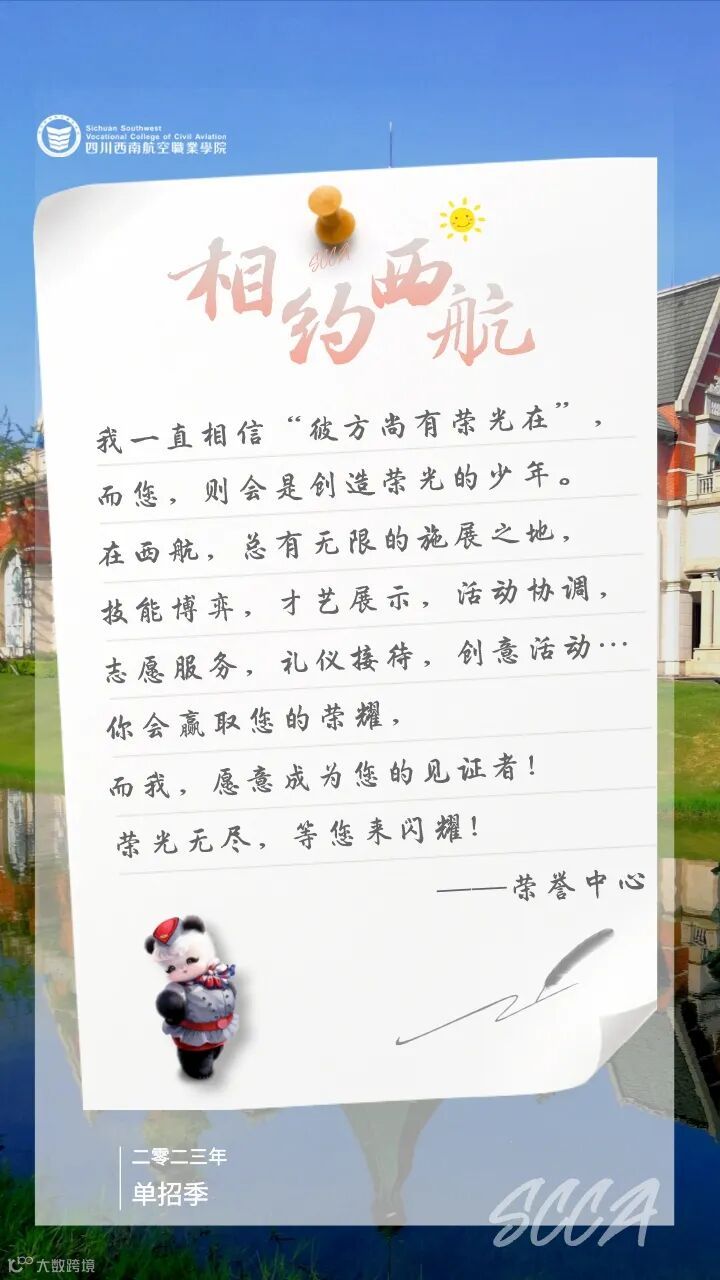 Sichuan Southwest
Vocational College of Civil Aviation
四川西南航空職業學院
相约西航
SCCA
我一直相信“彼方尚有荣光在”，
而您，则会是创造荣光的少年。
在西航，总有无限的施展之地，
技能博弈，才艺展示，活动协调，
志愿服务，礼仪接待，创意活动…
你会赢取您的荣耀，
而我，愿意成为您的见证者！
荣光无尽，等您来闪耀！
——荣誉中心
二零二三年
单招季
SCCA
大数跨境